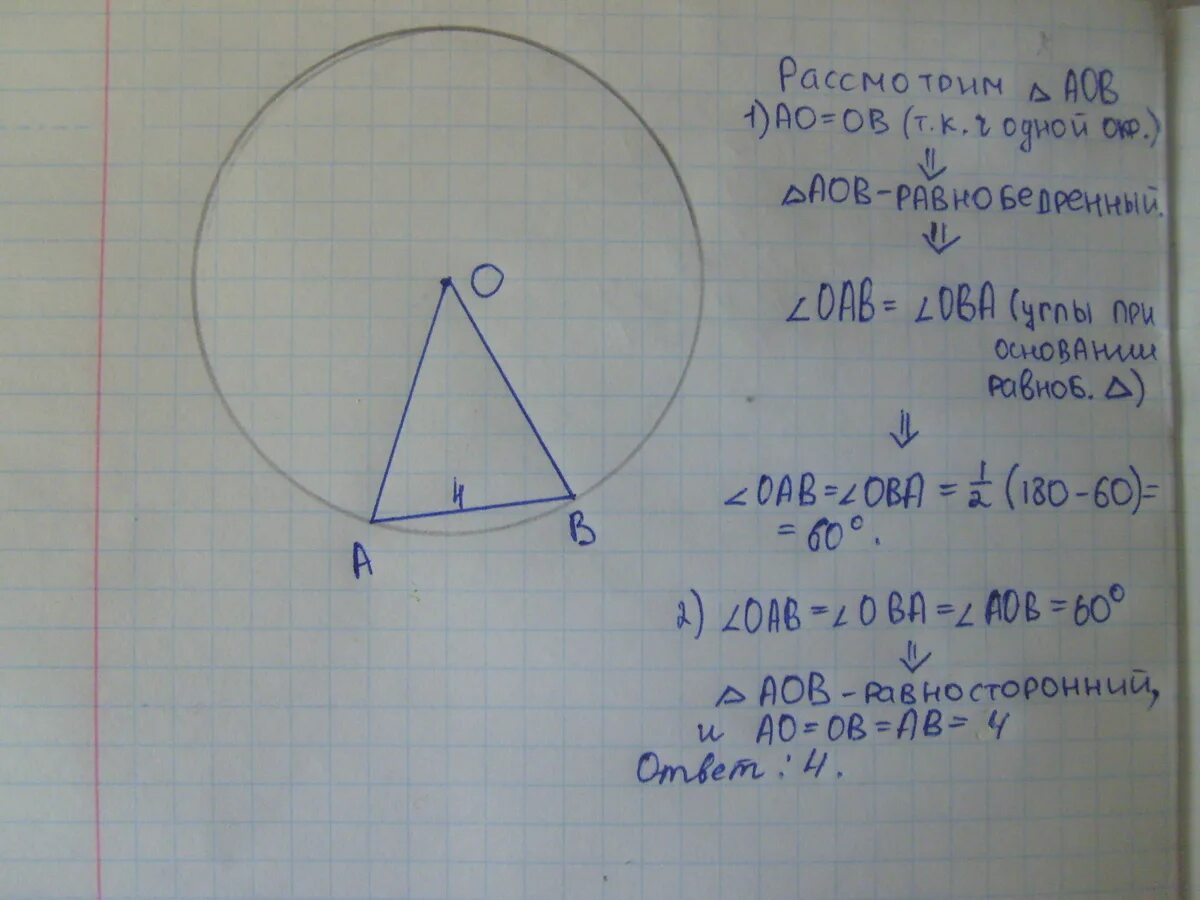 O
4
A
B
Рассмотрим △ AOB
1) AO = OB (т.к. r одной окр.)
⇓
△AOB - равнобедренный.
⇓
∠OAB = ∠OBA (углы при
основании
равноб. △)
⇓
∠OAB = ∠OBA = 1/2 (180 - 60) =
= 60°.
2) ∠OAB = ∠OBA = ∠AOB = 60°
⇓
△ AOB - равносторонний,
и AO = OB = AB = 4
Ответ: 4.